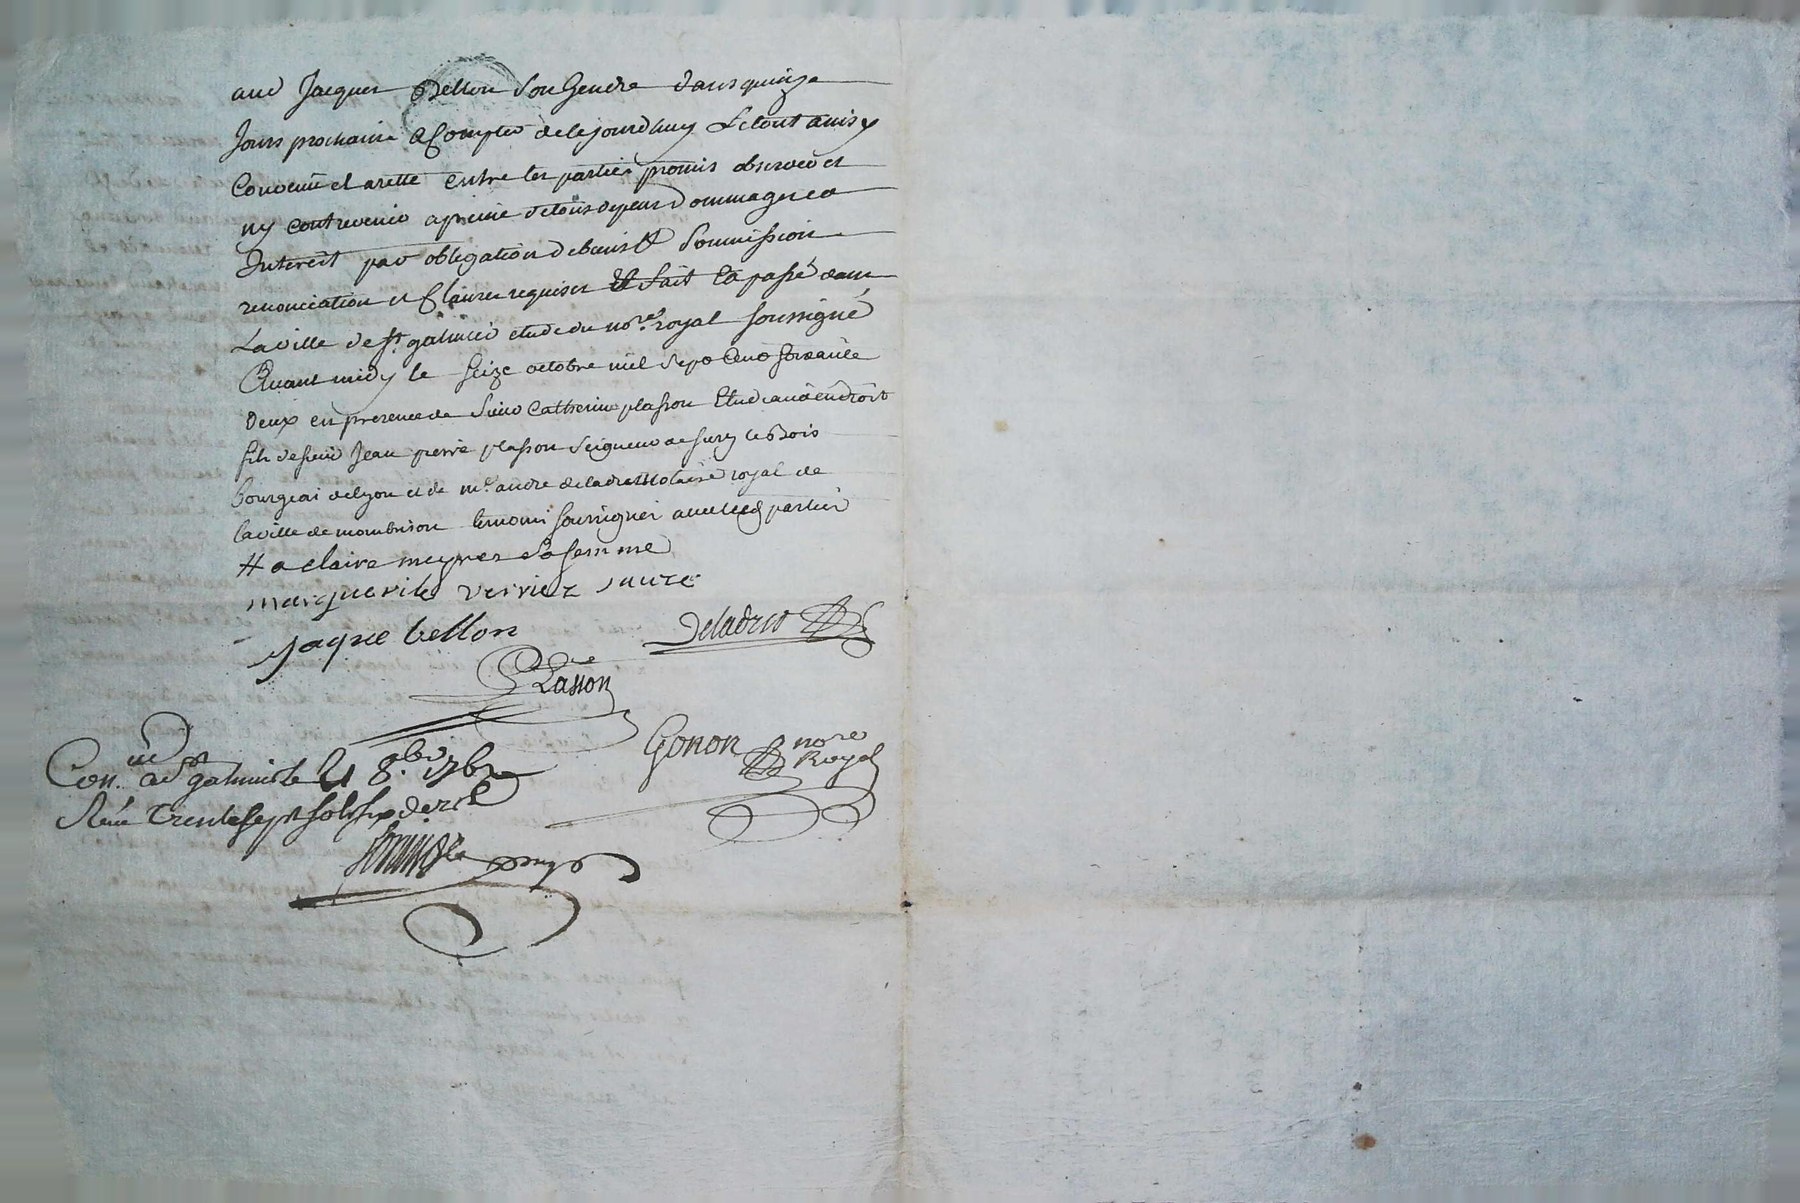 aud Jacques Bellon son Gendre dans quinze
Jours prochaine a Compter de cejourdhuy Letout ainsy
Convenu et aretté entre les parties promis observer et
ny contrevenir a peine detous depens Dommages et
Interest par obligation de biens Soumission
renonciation et Clauses requises Et fait Et passé dans
La ville de st galmier etude du nore royal soussigné
Avant midy le seize octobre mil sept Cent soixante
Deux en presence de Sieur Catherin plasson Etudiant en droit
fils de sieur Jean pierre plasson Seigneur de Sury le Bois
bourgeois de lyon et de me andre deladret Notaire royal de
la ville de mombrison temoins soussignes avec lesd parties
# a claire meynes sa femme
marguerite verriez
Jaque bellon
Plasson
Gonon nore
Royal
Con. a st galmier le 8.bre 1762
Reçu trente sept sols six deniers